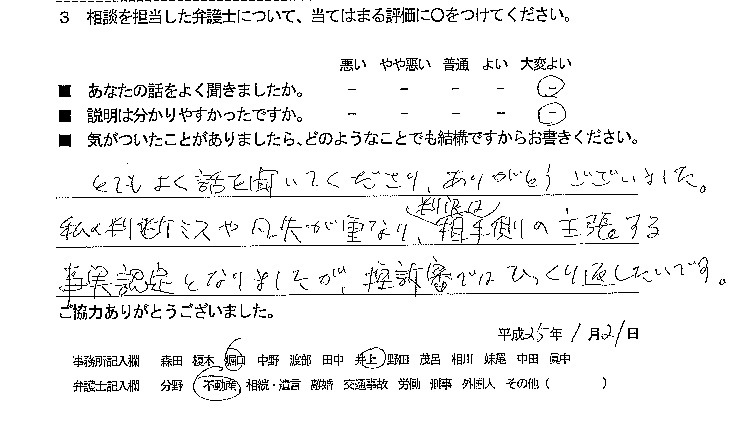 3 相談を担当した弁護士について、当てはまる評価に○をつけてください。
悪い やや悪い 普通 よい 大変よい
■ あなたの話をよく聞きましたか。 － － － － －
■ 説明は分かりやすかったですか。 － － － － －
■ 気がついたことがありましたら、どのようなことでも結構ですからお書きください。
とてもよく話を聞いてくださり、ありがとうございました。
判決は
私の判断ミスや 失が重なり、相手側の主張する
事実認定となりましたが、控訴審ではひっくり返したいです。
ご協力ありがとうございました。
平成25年1月21日
事務所記入欄 森田 榎本 堀口 中野 渡部 田中 井上 野田 茂呂 相川 妹尾 中田 眞中
弁護士記入欄 分野 不動産 相続・遺言 離婚 交通事故 労働 刑事 外国人 その他（ ）